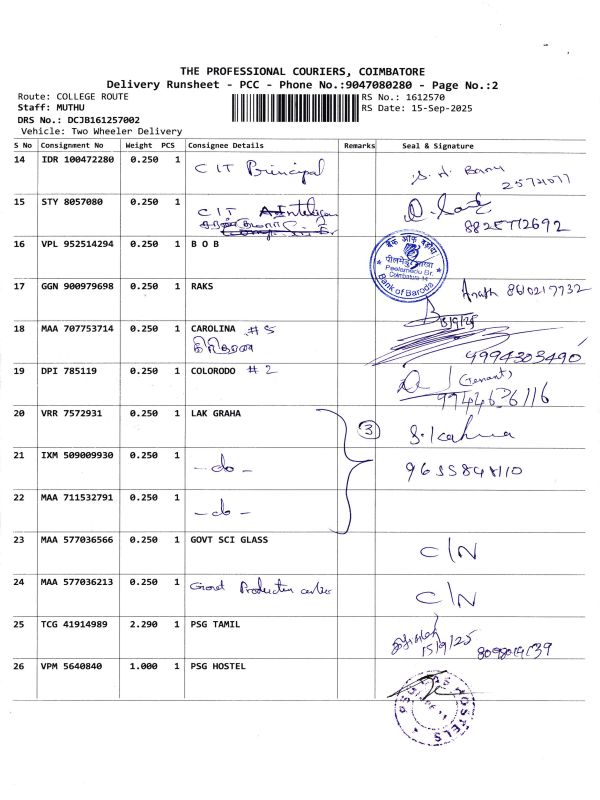 THE PROFESSIONAL COURIERS, COIMBATORE
Delivery Runsheet - PCC - Phone No.:9047080280 - Page No.:2
Route: COLLEGE ROUTE RS No.: 1612570
Staff: MUTHU RS Date: 15-Sep-2025
DRS No.: DCJB161257002
Vehicle: Two Wheeler Delivery
S No Consignment No Weight PCS Consignee Details Remarks Seal & Signature
14 IDR 100472280 0.250 1 CIT Principal
15 STY 8057080 0.250 1 CIT
8825772692
16 VPL 952514294 0.250 1 B O B
बैंक ऑफ़ बड़ौदा
Peelamedu Br.
Coimbatore
Bank of Baroda
17 GGN 900979698 0.250 1 RAKS
18 MAA 707753714 0.250 1 CAROLINA #5
9994303490
19 DPI 785119 0.250 1 COLORODO #2 (Tenant)
9944636116
20 VRR 7572931 0.250 1 LAK GRAHA 3
21 IXM 509009930 0.250 1 -do-
22 MAA 711532791 0.250 1 -do-
23 MAA 577036566 0.250 1 GOVT SCI GLASS C/N
24 MAA 577036213 0.250 1 C/N
25 TCG 41914989 2.290 1 PSG TAMIL
15/9/25
26 VPM 5640840 1.000 1 PSG HOSTEL
HOSTELS